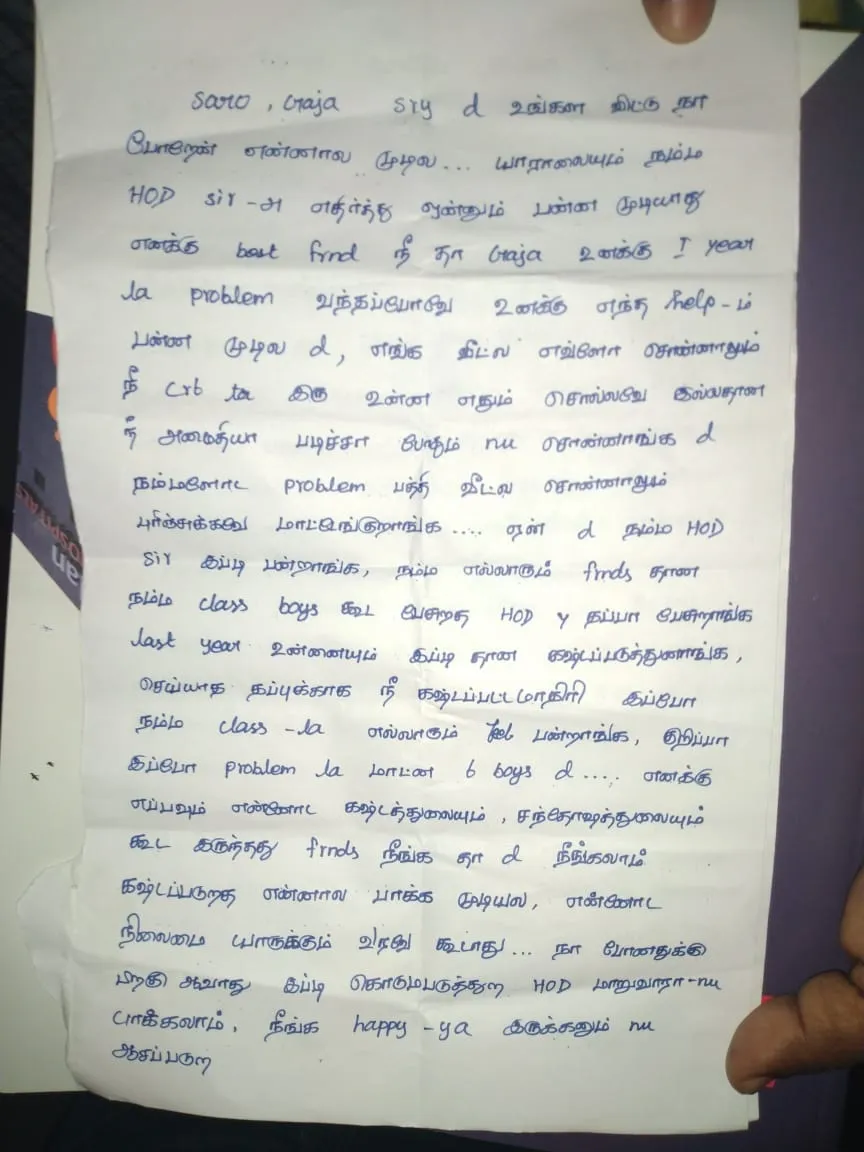 Saro, Graja sry d உங்கள விட்டு நா
போறேன் என்னால முடில... யாராலையும் நம்ம
HOD sir-அ எதிர்த்து ஒன்னும் பன்ன முடியாது
எனக்கு best frnd நீ தா Graja உனக்கு I year
la problem வந்தப்போவே உனக்கு எந்த help-ம்
பன்ன முடில d, எங்க வீட்ல எவ்ளோ சொன்னாலும்
நீ crt ta இரு உன்ன எதும் சொல்லவே இல்லதான
நீ அமைதியா படிச்சா போதும் nu சொன்னாங்க d
நம்மளோட problem பத்தி வீட்ல சொன்னாலும்
புரிஞ்சுக்கவே மாட்டேங்குறாங்க .... ஏன் d நம்ம HOD
sir இப்டி பன்றாங்க, நம்ம எல்லாரும் frnds தான
நம்ம class boys கூட பேசுறத HOD y தப்பா பேசுறாங்க
last year உன்னையும் இப்டி தான கஷ்டப்படுத்துனாங்க,
செய்யாத தப்புக்காக நீ கஷ்டப்பட்டமாதிரி இப்போ
நம்ம class -la எல்லாரும் feel பன்றாங்க, குறிப்பா
இப்போ problem la மாட்ன 6 boys d .... எனக்கு
எப்பவும் என்னோட கஷ்டத்துலையும், சந்தோஷத்துலையும்
கூட இருந்தது frnds நீங்க தா d நீங்கலாம்
கஷ்டப்படுறத என்னால பாக்க முடியல, என்னோட
நிலைமை யாருக்கும் வரவே கூடாது... நா போனதுக்கு
பிறகு ஆவாது இப்டி கொடுமபடுத்துற HOD மாறுவாரா-nu
பாக்கலாம், நீங்க happy-ya இருக்கனும் nu
ஆசப்படுற